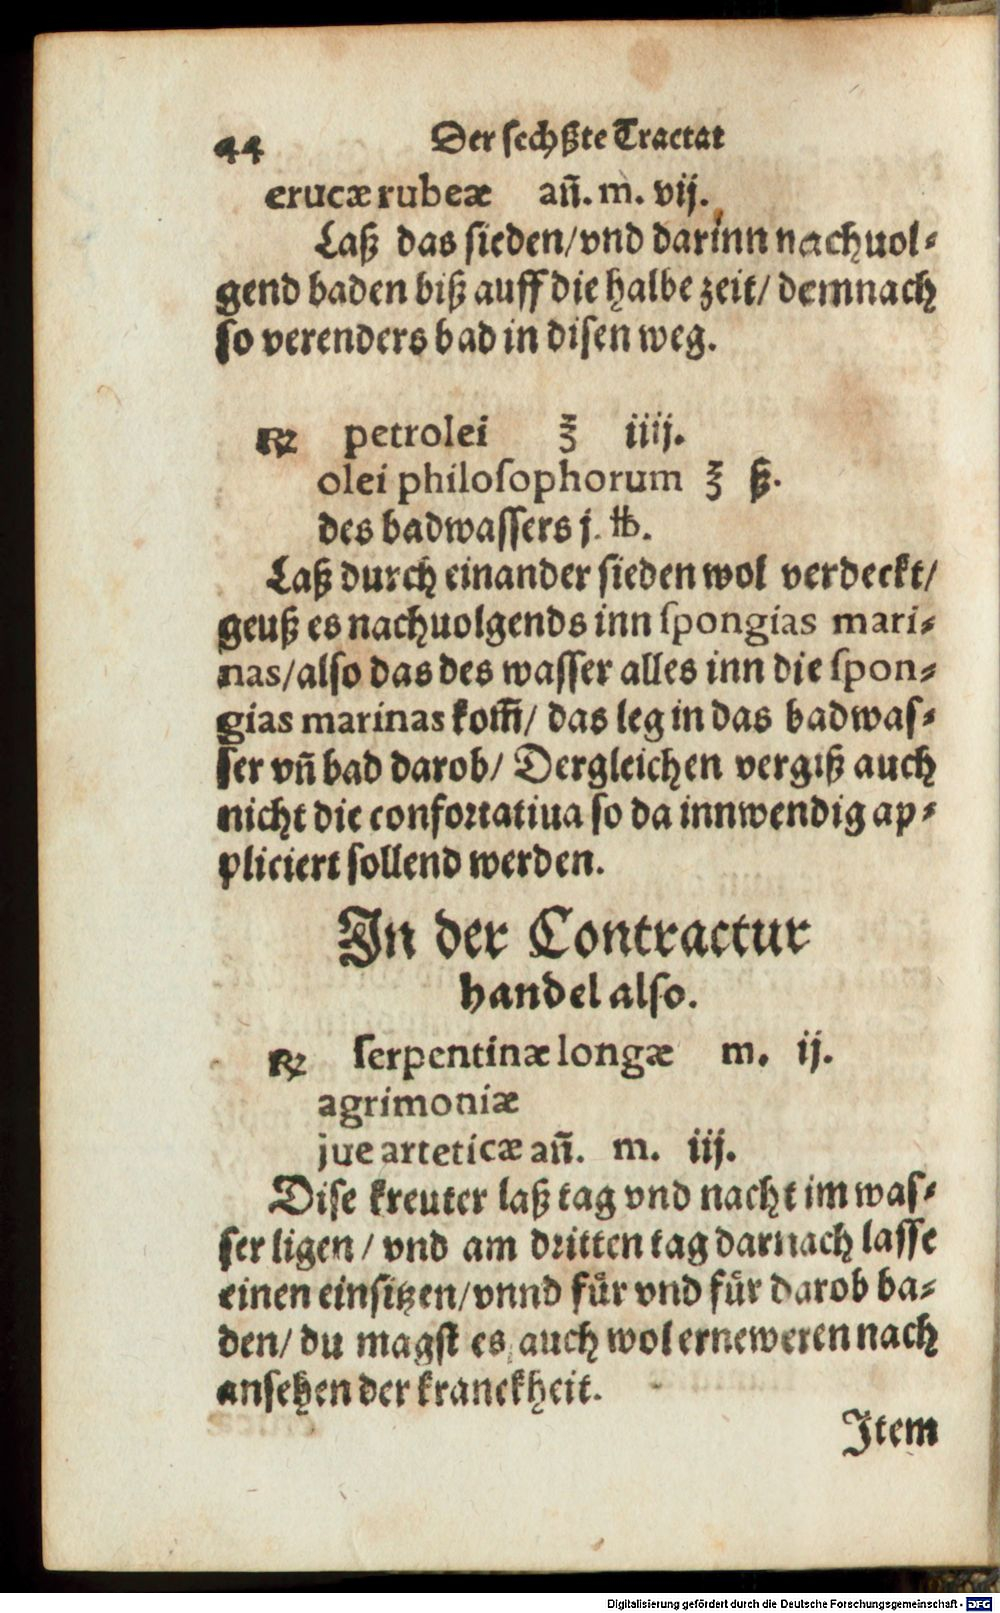 44 Der sechßte Tractat
erucæ rubeæ añ. m. vij.
Laß das sieden/vnd darinn nachuol⸗
gend baden biß auff die halbe zeit/ demnach
so verenders bad in disen weg.
℞ petrolei ʒ iiij.
olei philosophorum ʒ ß.
des badwassers j. ℔.
Laß durch einander sieden wol verdeckt/
geuß es nachuolgends inn spongias mari⸗
nas/also das des wasser alles inn die spon⸗
gias marinas kom̃/ das leg in das badwas⸗
ser vñ bad darob/ Dergleichen vergiß auch
nicht die confortatiua so da innwendig ap⸗
pliciert sollend werden.
In der Contractur
handel also.
℞ serpentinæ longæ m. ij.
agrimoniæ
jue arteticæ añ. m. iij.
Dise kreuter laß tag vnd nacht im was⸗
ser ligen / vnd am dritten tag darnach lasse
einen einsitzen/vnnd fuͤr vnd fuͤr darob ba⸗
den/ du magst es auch wol erneweren nach
ansehen der kranckheit.
Item
Digitalisierung gefördert durch die Deutsche Forschungsgemeinschaft - DFG